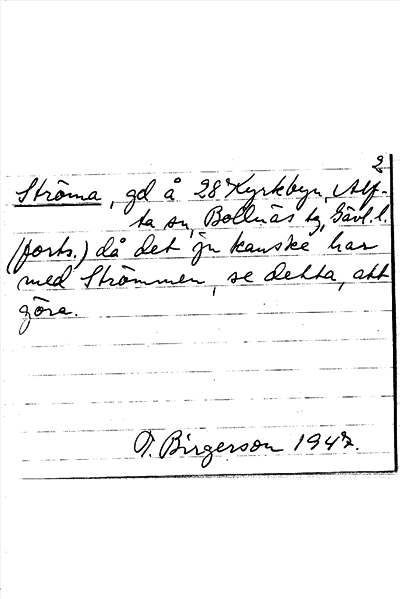 2
Ströma, gd å 28² Kyrkbyn, Alf-
ta sn, Bollnäs tg, Gävl. l.
(forts.) då det ju kanske har
med Strömmen, se detta, att
göra.
T. Birgerson 1947.